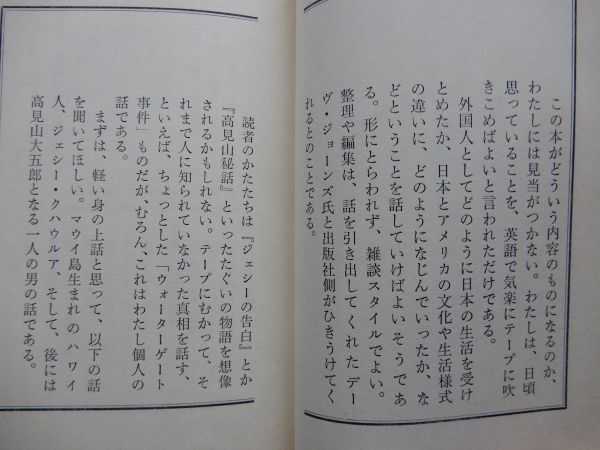 この本がどういう内容のものになるのか、
わたしには見当がつかない。わたしは、日頃
思っていることを、英語で気楽にテープに吹
きこめばよいと言われただけである。
外国人としてどのように日本の生活を受け
とめたか、日本とアメリカの文化や生活様式
の違いに、どのようになじんでいったか、な
どということを話していけばよいそうであ
る。形にとらわれず、雑談スタイルでよい。
整理や編集は、話を引き出してくれたデー
ヴ・ジョーンズ氏と出版社側がひきうけてく
れるとのことである。
読者のかたたちは『ジェシーの告白』とか
『高見山秘話』といったたぐいの物語を想像
されるかもしれない。テープにむかって、そ
れまで人に知られていなかった真相を話す、
といえば、ちょっとした「ウォーターゲート
事件」ものだが、むろん、これはわたし個人の
話である。
まずは、軽い身の上話と思って、以下の話
を聞いてほしい。マウイ島生まれのハワイ
人、ジェシー・クハウルア、そして、後には
高見山大五郎となる一人の男の話である。